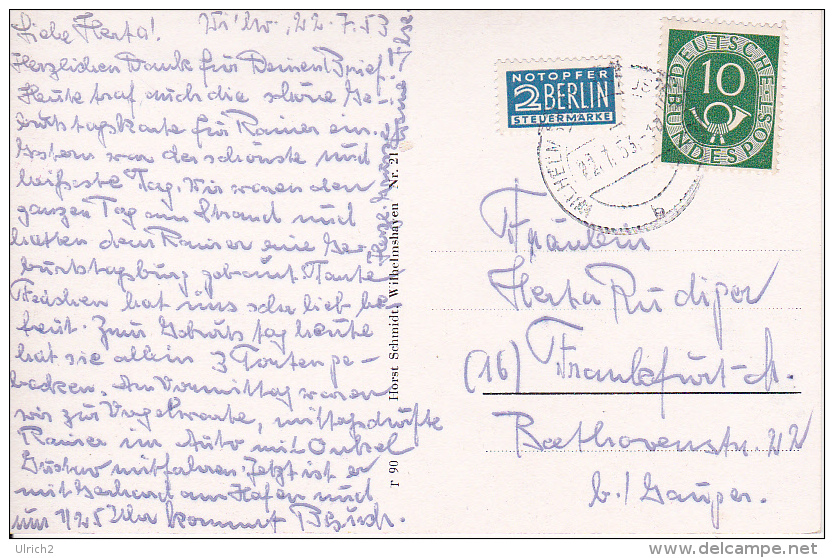 Liebe Herta! W'hv., 22.7.53
Herzlichen Dank für Deinen Brief.
Heute traf auch die schöne Ge-
burtstagskarte für Rainer ein.
Gestern war der schönste und
heißeste Tag. Wir waren den
ganzen Tag am Strand und
hatten dem Rainer eine Ge-
burtstagsburg gebaut. Tante
Frädchen hat uns sehr lieb be
treut. Zum Geburtstag heute
hat sie allein 3 Torten ge-
backen. Am Vormittag waren
wir zur Vogelwarte, mittags durfte
Rainer im Auto mit Onkel
Gustav mitfahren. Jetzt ist er
mit Gerhard am Hafen und
um 1/25 Uhr kommt Besuch.
Herzl. Grüße
Ilse
r 90 Horst Schmidt, Wilhelmshaven Nr. 21
NOTOPFER
2 BERLIN
STEUERMARKE
DEUTSCHE BUNDESPOST
10
WILHELM
22.7.53
b
Fräulein
Herta Rüdiger
(16) Frankfurt-M.
Beethovenstr. 22
b./ Gauger.
Ulrich2
delcampe.net